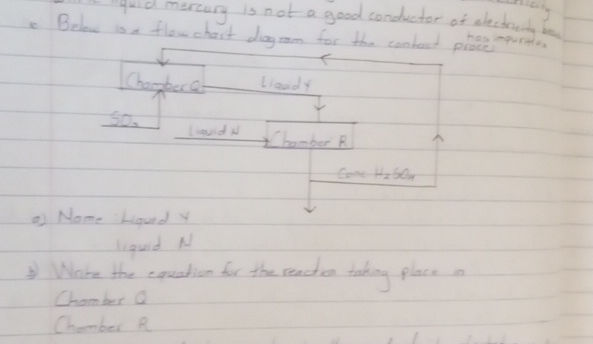 liquid mercury is not a good conductor of electricity
has impurities
c Below is a flow chart diagram for the contact process
Chamber Q
Liquid Y
SO₃
Liquid N
Chamber R
Conc H₂SO₄
a) Name Liquid Y
liquid N
b) Write the equation for the reaction taking place in
Chamber Q
Chamber R